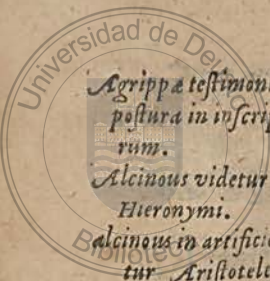 Universidad de Deu
Agrippæ teſtimoni
poſtura in inſcrip
rum.
Alcinous videtur
Hieronymi.
alcinous in artificio
Bibliotec
tur Ariſtotele